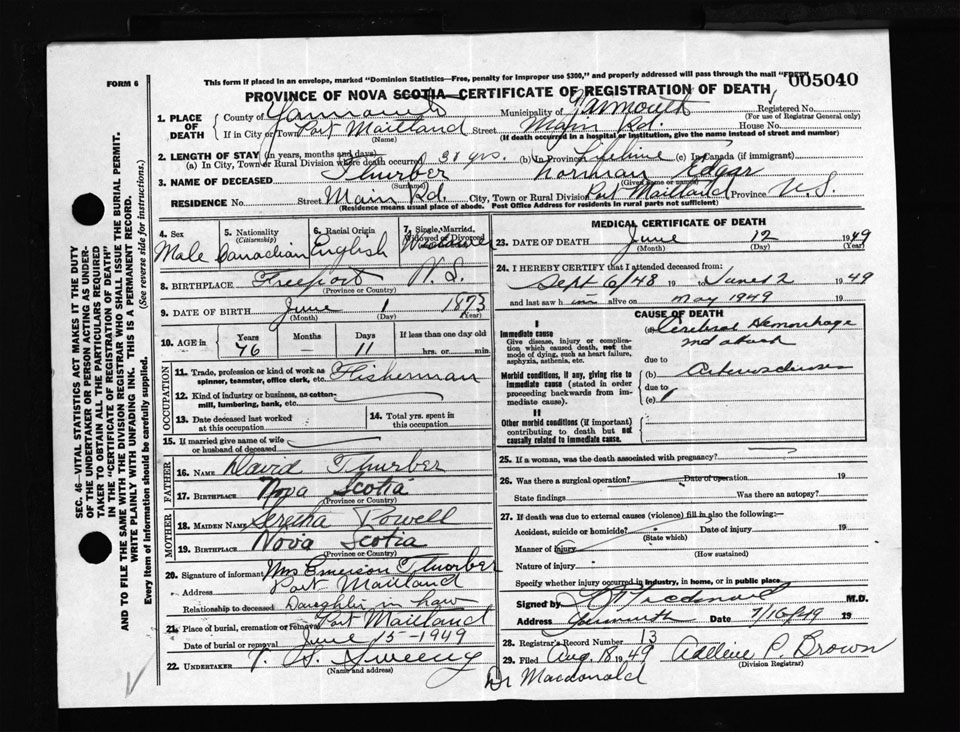 FORM 6
This form if placed in an envelope, marked "Dominion Statistics—Free, penalty for improper use $300," and properly addressed will pass through the mail "FREE"
005040
PROVINCE OF NOVA SCOTIA—CERTIFICATE OF REGISTRATION OF DEATH
1. PLACE OF DEATH
County of Yarmouth Municipality of Yarmouth Registered No.
(For use of Registrar General only)
If in City or Town Port Maitland Street Main Rd. House No.
(Name) (If death occurred in a hospital or institution, give the name instead of street and number)
2. LENGTH OF STAY (in years, months and days)
(a) In City, Town or Rural Division where death occurred 38 yrs. (b) In Province Lifetime (c) In Canada (if immigrant)
3. NAME OF DECEASED Thurber Norman Edgar
(Surname) (Given name or names)
RESIDENCE No. Street Main Rd. City, Town or Rural Division Port Maitland Province N.S.
(Residence means usual place of abode. Post Office Address for residents in rural parts not sufficient)
4. Sex Male
5. Nationality (Citizenship) Canadian
6. Racial Origin English
7. Single, Married, Widowed or Divorced Widower
8. BIRTHPLACE Freeport N.S.
(Province or Country)
9. DATE OF BIRTH June 1 1873
(Month) (Day) (Year)
10. AGE in Years Months Days If less than one day old
76 — 11 hrs. or min.
OCCUPATION
11. Trade, profession or kind of work as spinner, teamster, office clerk, etc. Fisherman
12. Kind of industry or business, as cotton-mill, lumbering, bank, etc.
13. Date deceased last worked at this occupation
14. Total yrs. spent in this occupation
15. If married give name of wife or husband of deceased
FATHER
16. NAME David Thurber
17. BIRTHPLACE Nova Scotia
(Province or Country)
MOTHER
18. MAIDEN NAME Seretha Powell
19. BIRTHPLACE Nova Scotia
(Province or Country)
20. Signature of informant Mrs Emerson Thurber
Address Port Maitland
Relationship to deceased Daughter in law
21. Place of burial, cremation or removal Port Maitland
Date of burial or removal June 15-1949
22. UNDERTAKER V. S. Sweeny
(Name and address)
MEDICAL CERTIFICATE OF DEATH
23. DATE OF DEATH June 12 1949
(Month) (Day) (Year)
24. I HEREBY CERTIFY that I attended deceased from
Sept 6/48 19 to June 12 1949
and last saw h im alive on May 1949 19
CAUSE OF DEATH
I
Immediate cause
Give disease, injury or complication which caused death, not the mode of dying, such as heart failure, asphyxia, asthenia, etc.
(a) Cerebral Hemorrhage
2nd attack
due to
Morbid conditions, if any, giving rise to immediate cause (stated in order proceeding backwards from immediate cause).
(b) Arteriosclerosis
due to
(c)
II
Other morbid conditions (if important) contributing to death but not causally related to immediate cause.
25. If a woman, was the death associated with pregnancy?
26. Was there a surgical operation? Date of operation 19
State findings Was there an autopsy?
27. If death was due to external causes (violence) fill in also the following:—
Accident, suicide or homicide? Date of injury 19
(State which)
Manner of injury
(How sustained)
Nature of injury
Specify whether injury occurred in industry, in home, or in public place
Signed by Macdonald M.D.
Address Yarmouth Date 7/16/49 19
28. Registrar's Record Number 13
29. Filed Aug. 18 1949 Adleine P. Brown
(Division Registrar)
Dr Macdonald
SEC. 46—VITAL STATISTICS ACT MAKES IT THE DUTY
OF THE UNDERTAKER OR PERSON ACTING AS UNDER-
TAKER TO OBTAIN ALL THE PARTICULARS REQUIRED
IN THE "CERTIFICATE OF REGISTRATION OF DEATH"
AND TO FILE THE SAME WITH THE DIVISION REGISTRAR WHO SHALL ISSUE THE BURIAL PERMIT.
WRITE PLAINLY WITH UNFADING INK. THIS IS A PERMANENT RECORD.
Every item of information should be carefully supplied. (See reverse side for instructions.)